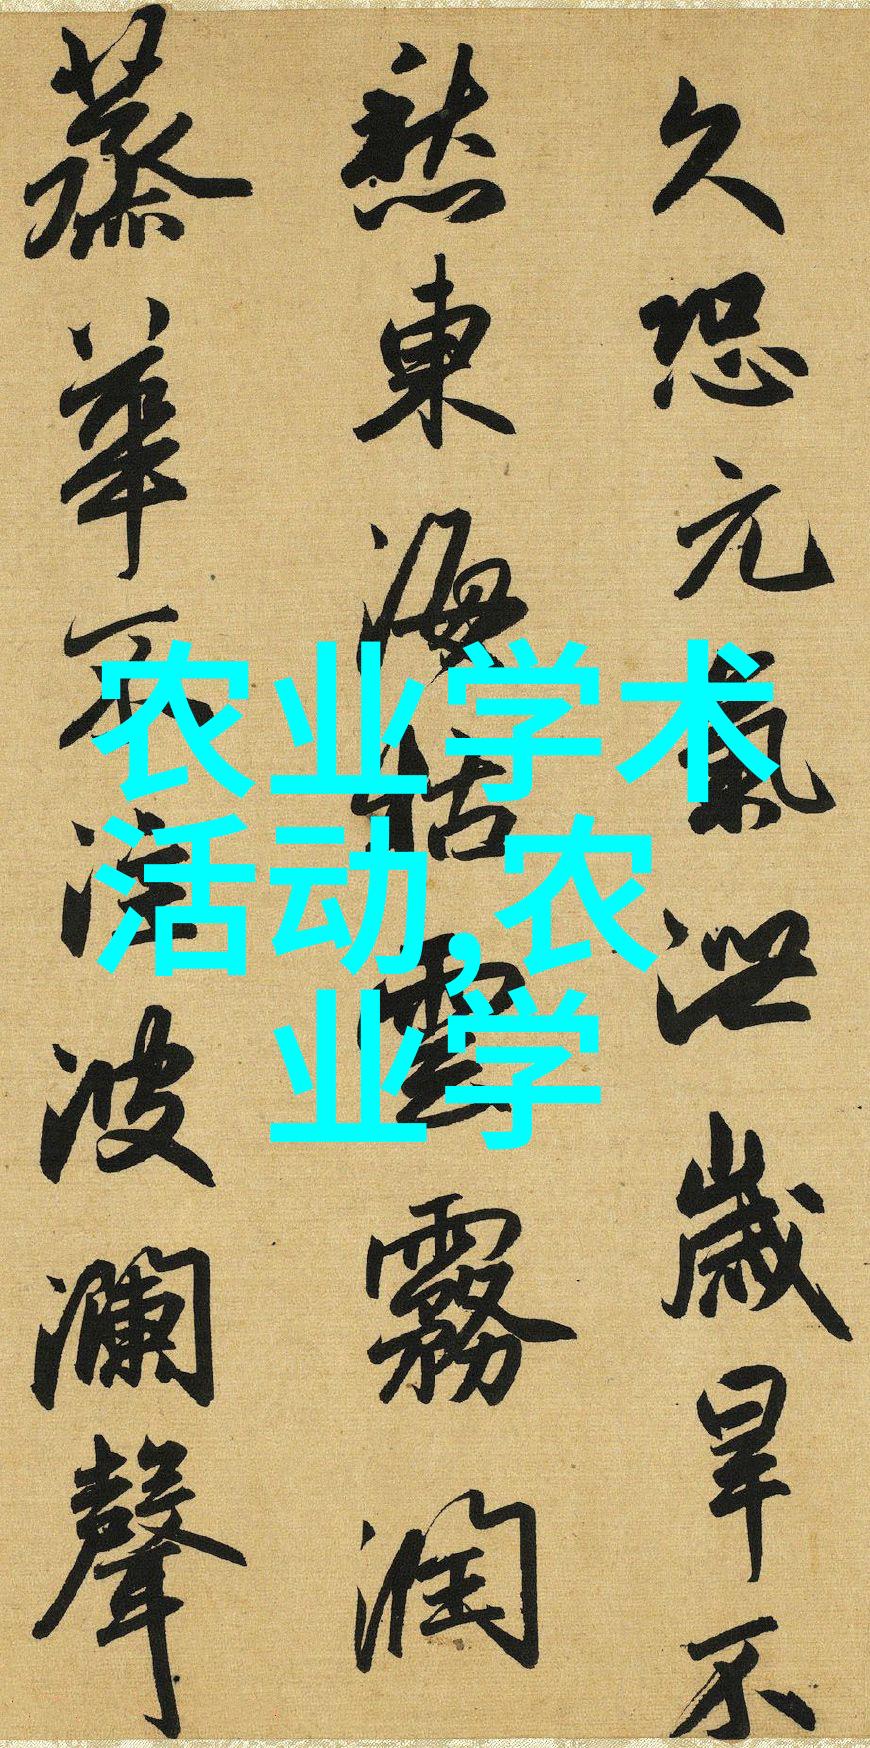 久恐元氣泄歲旱不
愁東海枯雲霧潤
蒸華不注波瀾聲
农业学术
活动,农
业学